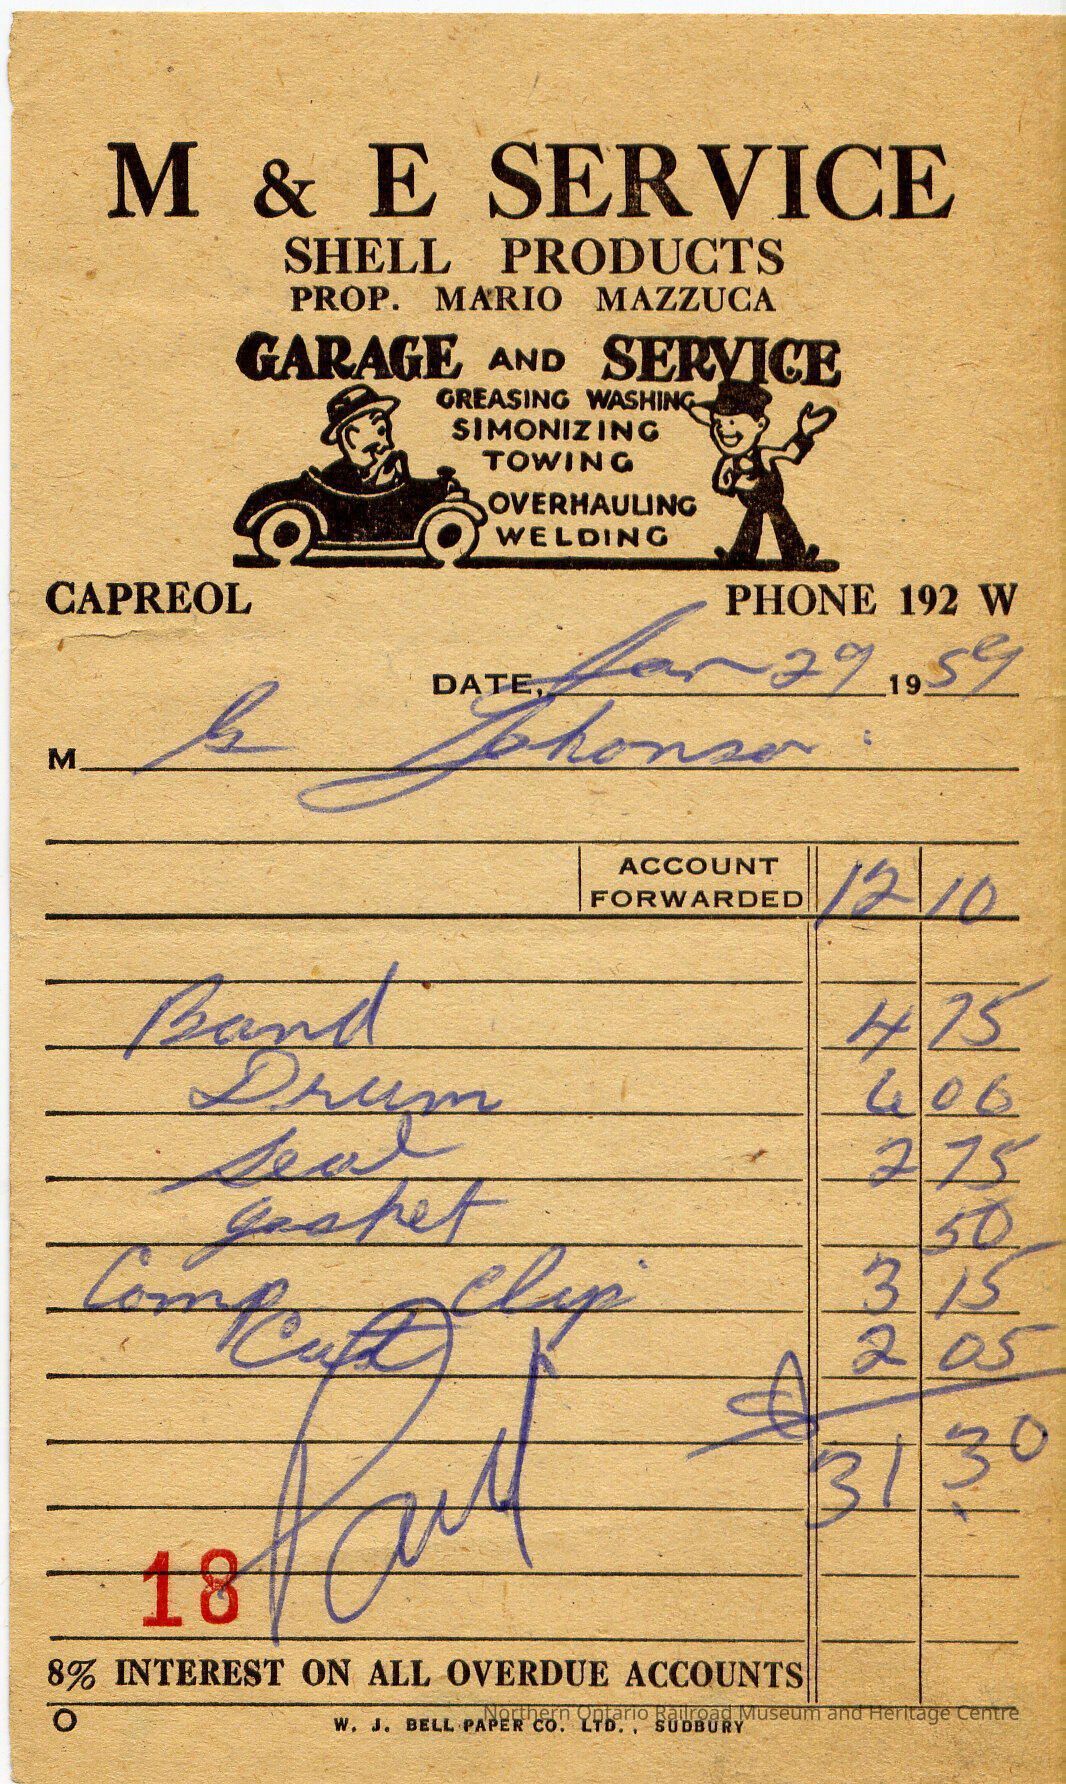 M & E SERVICE
SHELL PRODUCTS
PROP. MARIO MAZZUCA
GARAGE AND SERVICE
GREASING WASHING
SIMONIZING
TOWING
OVERHAULING
WELDING
CAPREOL PHONE 192 W
DATE, Jan 29 1959
M G Johonson
ACCOUNT FORWARDED 12 10
Band 4 75
Drum 6 00
Seal 2 75
gasket 50
Comp Clip 3 15
2 05
$ 31 30
Paid
18
8% INTEREST ON ALL OVERDUE ACCOUNTS
Northern Ontario Railroad Museum and Heritage Centre
W. J. BELL PAPER CO. LTD., SUDBURY